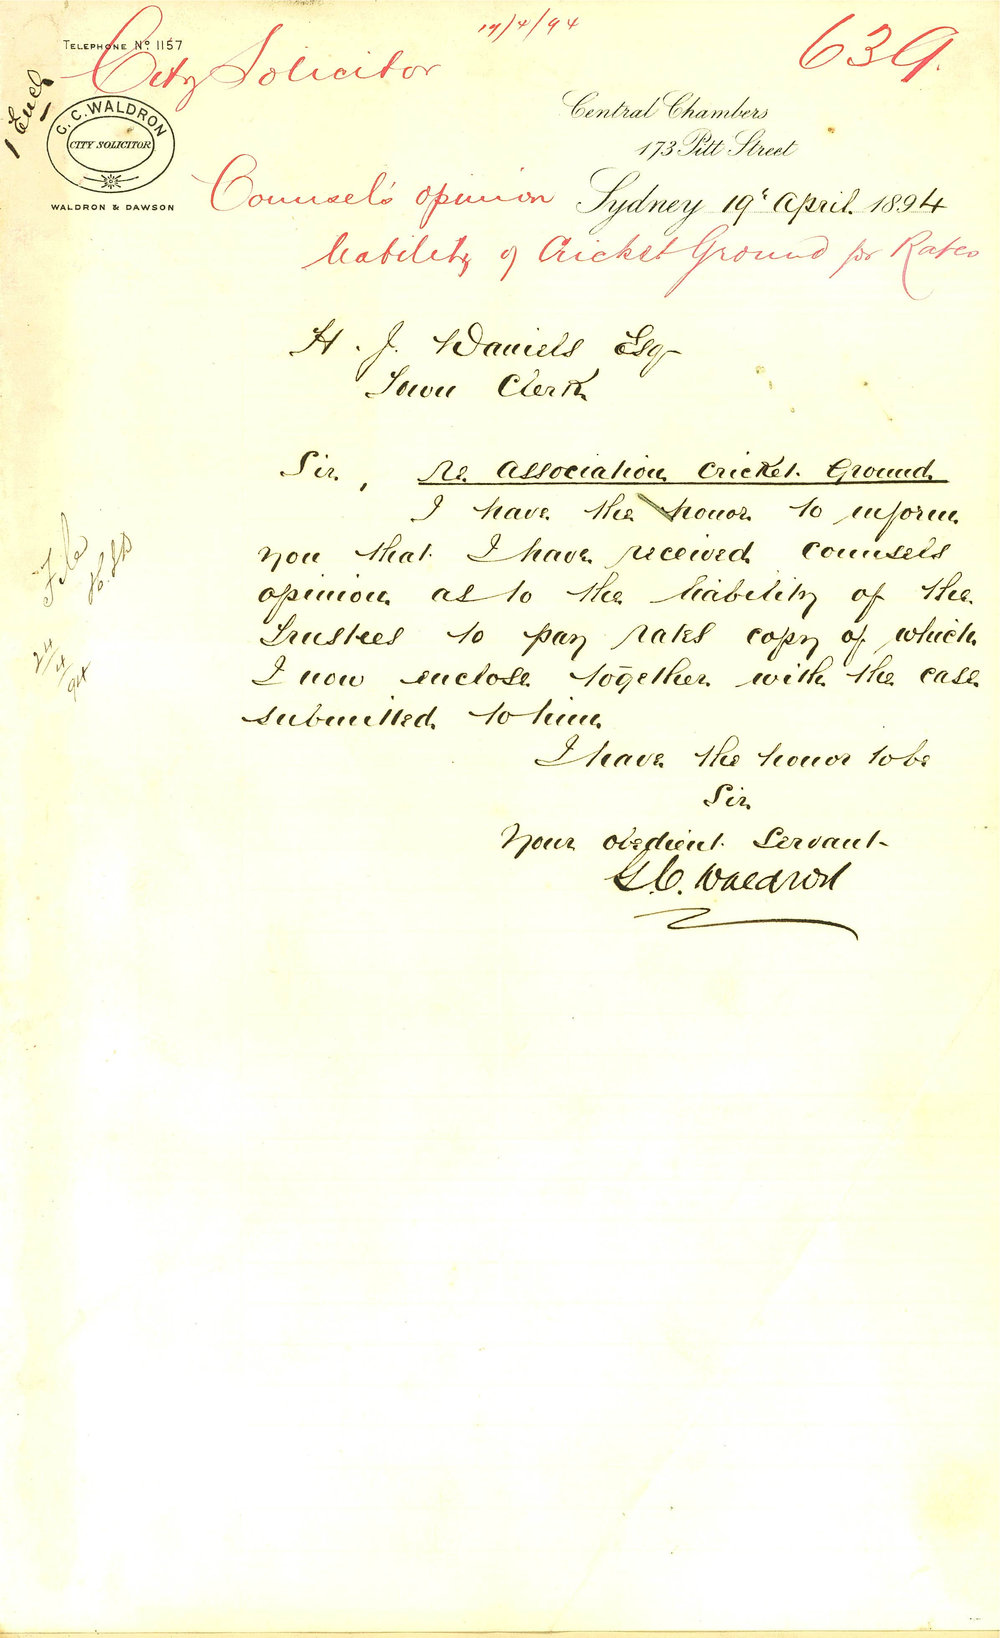 19/4/94
639.
TELEPHONE Nº 1157
City Solicitor
1 Encl
C. C. WALDRON
CITY SOLICITOR
WALDRON & DAWSON
Central Chambers
173 Pitt Street
Counsel's opinion
Sydney 19t April. 1894
liability of Cricket Ground for Rates
H. J. Daniels Esq
Town Clerk
Sir, Re Association Cricket Ground
I have the honor to inform
you that I have received counsels
opinion as to the liability of the
Trustees to pay rates copy of which
I now enclose together with the case
submitted to him
I have the honor to be
Sir
Your obedient Servant
G.C. Waldron
File
24/4/94